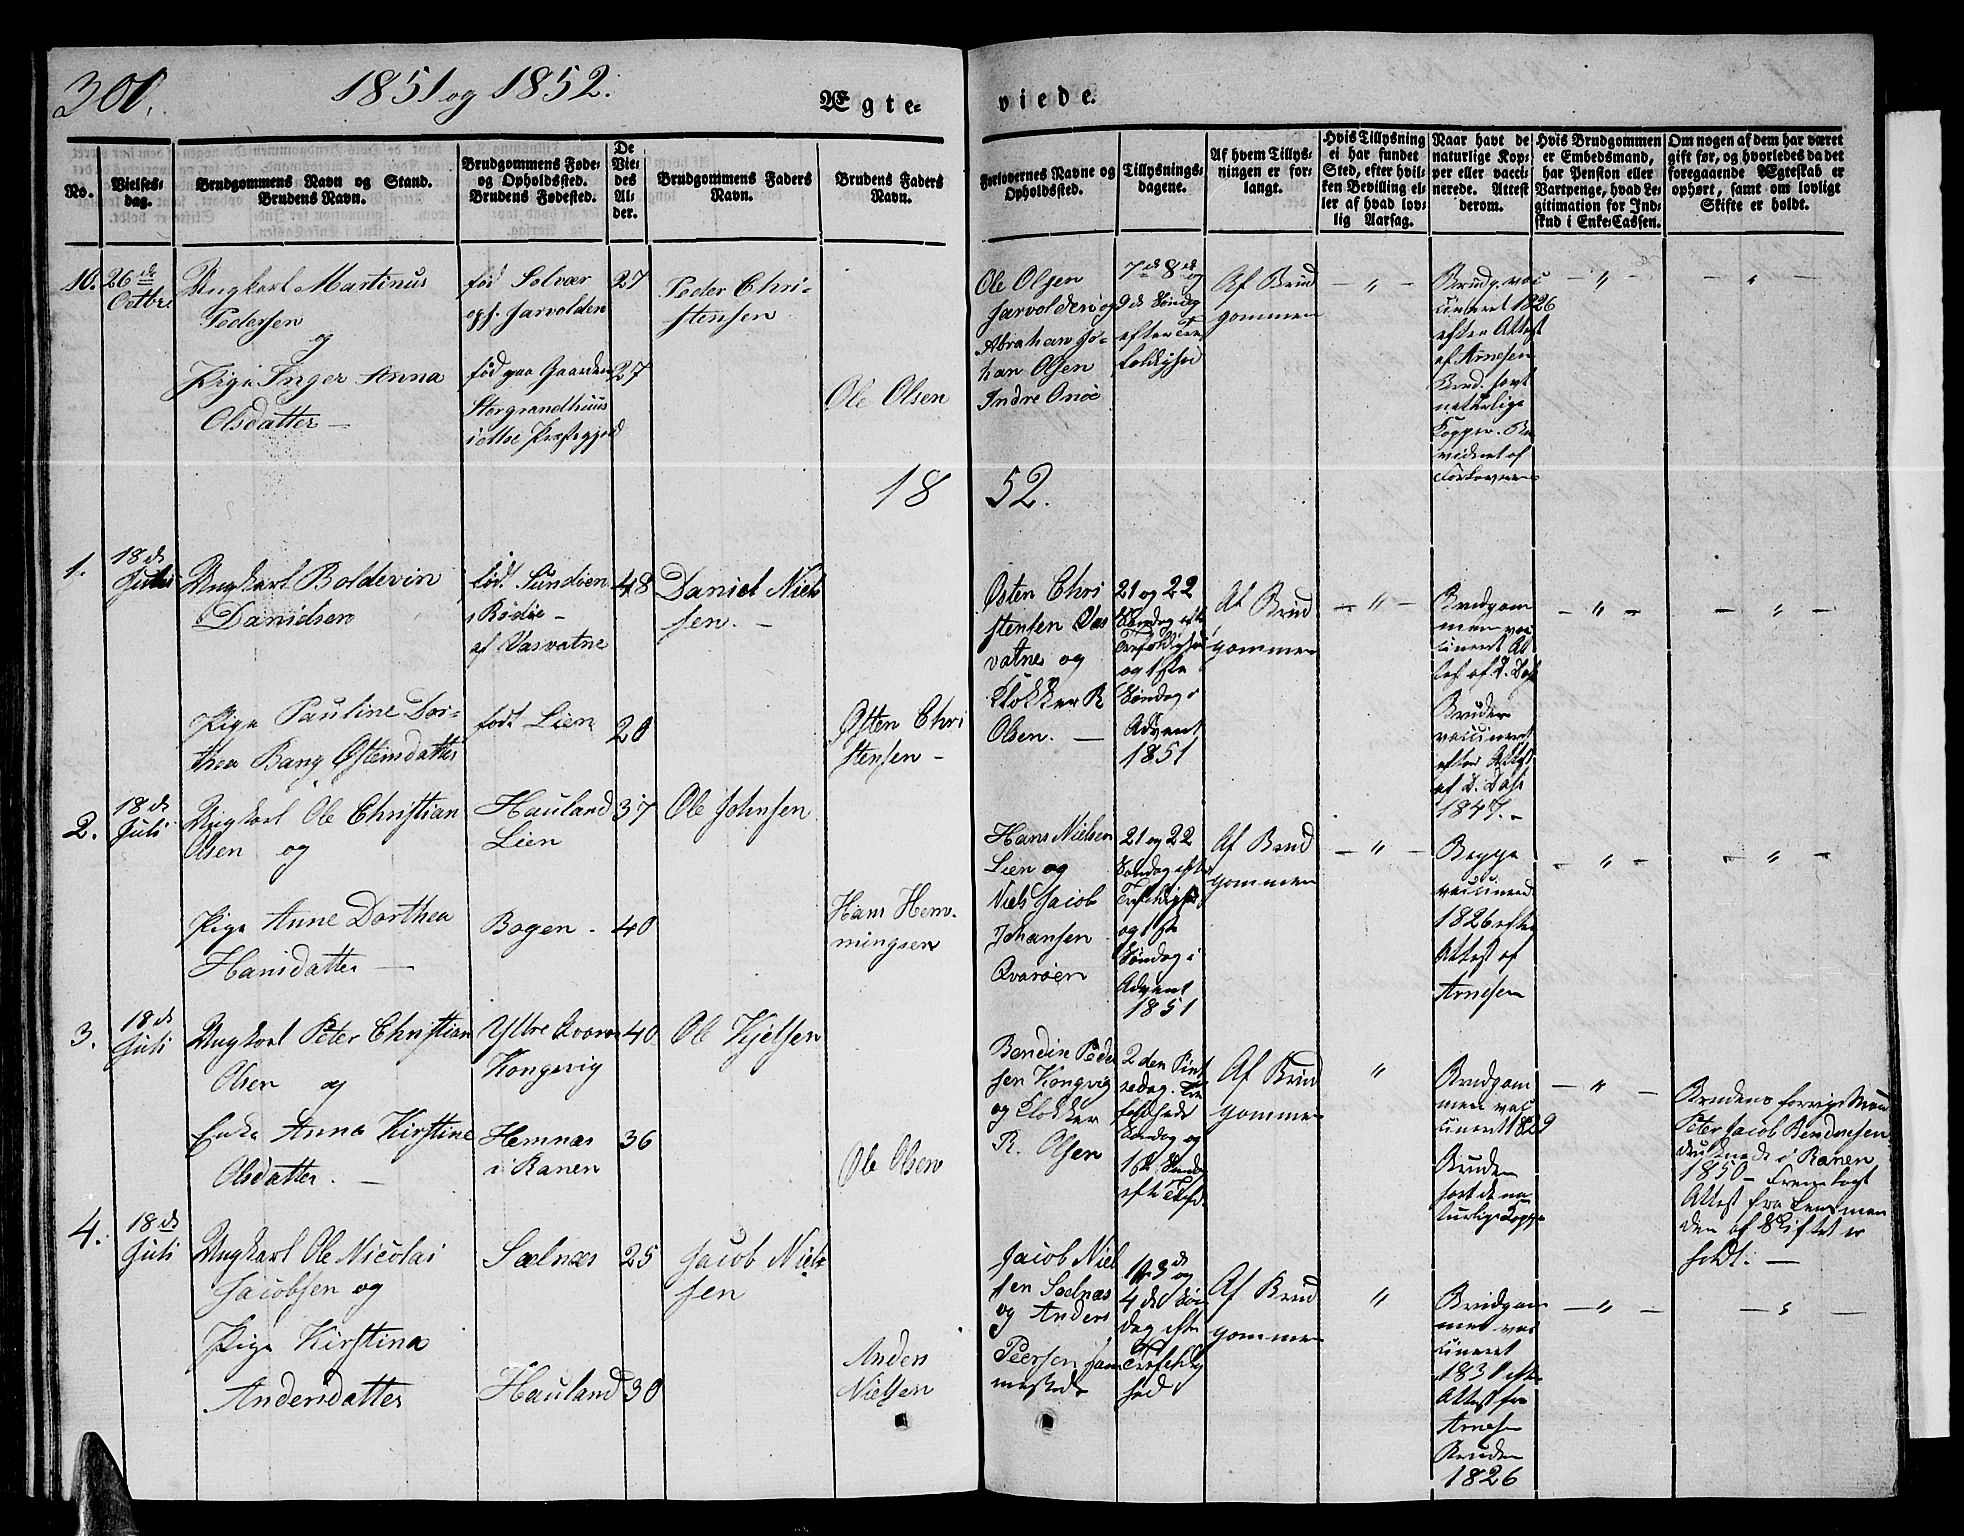 301.
1851 og 1852.
Ægte-
viede.
No.
Vielses-
dag.
Brudgommens Navn og Stand.
Brudens Navn.
Brudgommens Føde-
og Opholdssted.
Brudens Fødested.
De
Vie-
des
Al-
der.
Brudgommens Faders
Navn.
Brudens Faders
Navn.
Forlovernes Navne og
Opholdssted.
Tillysnings-
dagene.
Af hvem Tillys-
ningen er for-
langt.
Hvis Tillysning
ei har fundet
Sted, efter hvil-
ken Bevilling el-
ler af hvad lov-
lig Aarsag.
Naar havt de
naturlige Kop-
per eller vacci-
nerede. Attest
derom.
Hvis Brudgommen
er Embedsmand,
har Pension eller
Vartpenge, hvad Le-
gitimation for Ind-
skud i Enke-Cassen.
Om nogen af dem har været
gift før, og hvorledes da det
foregaaende Ægteskab er
ophørt, samt om lovligt
Skifte er holdt.
10.
26de
Octbr.
Ungkarl Martinus
Pedersen
og
Pige Inger Anna
Olsdatter -
fød Solvær
oph. Harvolden
fød paa Gaarden
i dette Præstegjeld
27
27
Peder Chri-
stensen
Ole Olsen
Ole Olsen
Harvolden og
Abraham Jo-
han Olsen
Indre Onøe
7de 8de og
9de Søndag
efter Tre
foldighed
Af Brud
gommen
- " -
Brudg. vac
cineret 1826
efter Attest
af Arnesen
Brud. havt
naturlige
Kopper.
Forloverne
- " -
- " -
18 52.
1.
18de
Juli
Ungkarl Boldevin
Danielsen
Pige Pauline Dor-
thea Bang Østensdatter
fød. Sundøen
i Rødøe -
af Vasvatne
født Lien
48
20
Daniel Niel
sen. -
Østen Chri
stensen -
Østen Chri
stensen Vas
vatne og
Klokker R
Olsen. -
21 og 22
Søndag efte
Trefoldighed
og 1ste
Søndag i
Advent
1851
Af Brud
gommen
- " -
Brudgom
men vac
cineret At
test af D. Dass
Bruden
vaccineret
efter Attest
af D. Dass
1847. -
- " -
- " -
2.
18de
Juli
Ungkarl Ole Christian
Olsen og
Pige Anne Dorthea
Hansdatter -
Hauland
Lien
Bogen -
37
40
Ole Johnsen
Hans Hem-
mingsen
Hans Nielsen
Lien og
Niels Jacob
Johansen
Qvarøen
21 og 22
Søndag efte
Trefoldighe
og 1ste
Søndag i
Advent
1851
Af Brud
gommen
- " -
Begge
vaccinered
1826 efter
Attest af
Arnesen
- " -
- " -
3.
18de
Juli
Ungkarl Peter Christian
Olsen og
Enke Anna Kirstine
Olsdatter. -
Yttre Qvarøe
Kongsvig
Hemnæs
i Ranen
40
36
Ole Kjelsen
Ole Olsen
Bendix Peder
sen Kongvig
og Klokker
R. Olsen
2den Pint
sedag. Tre
foldheds
Søndag og
1ste Sønd.
eft. Tref.
Af Brud
gommen
"
Brudgom
men vac
cineret 1829
Bruden
havt de na
turlige Kopper
- " -
Brudens forrige Man
Peter Jacob Bendixsen
druknede i Ranen
1850 - Fremlagt
Attest fra Lensman
den af Skiftet er
holdt. -
4.
18de
Juli
Ungkarl Ole Nicolai
Jacobsen og
Pige Kirstina
Andersdatter
Sælnæs
Hauland
25
30
Jacob Niel-
sen
Anders
Nielsen
Jacob Niel
sen Sælnæs
og Anders
Peersen sam
mesteds
3de og
4de Søn
dag efte
Trefoldig
hed
Af Brud
gommen
"
Brudgom
men vac
cineret
1831 efte
Attest fra
Arnesen
Bruden
1826
- " -
- " -